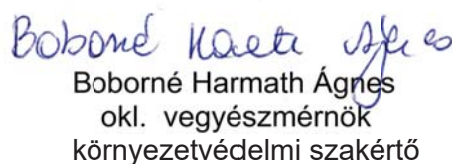 Boborné
Boborné Harmath Ágnes
okl. vegyészmérnök
környezetvédelmi szakértő